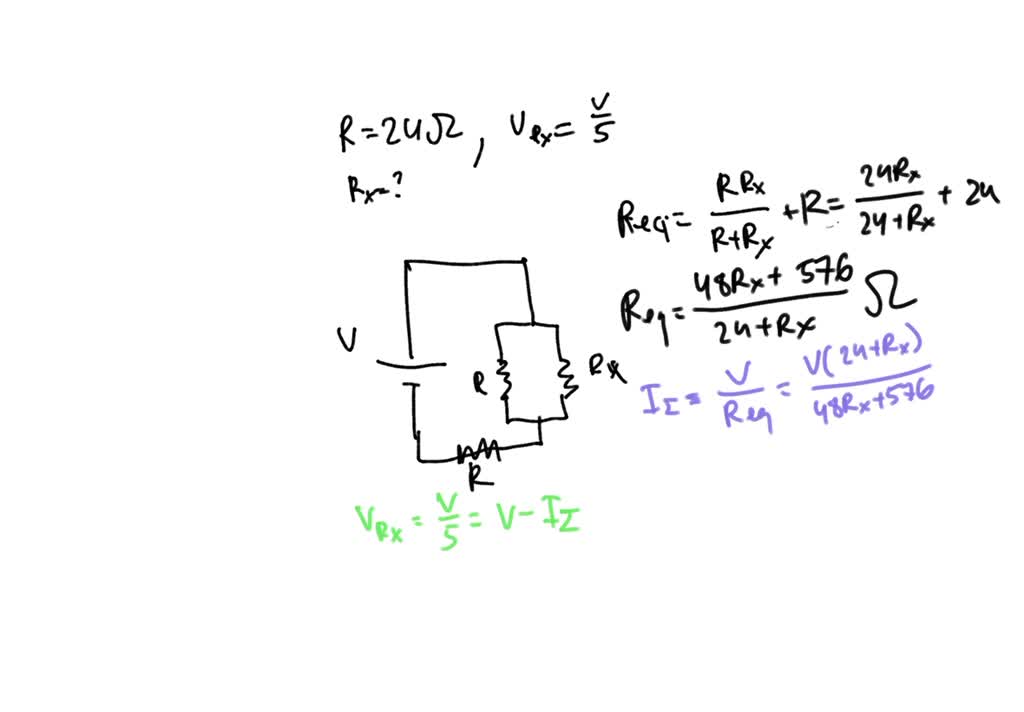 R = 24Ω, V_Rx = V/5
Rx = ?
Req = R Rx / R+Rx + R = 24Rx / 24+Rx + 24
Req = 48Rx + 576 / 24+Rx Ω
V
R
Rx
I_Σ = V / Req = V(24+Rx) / 48Rx+576
R
V_Rx = V/5 = V - I_Σ